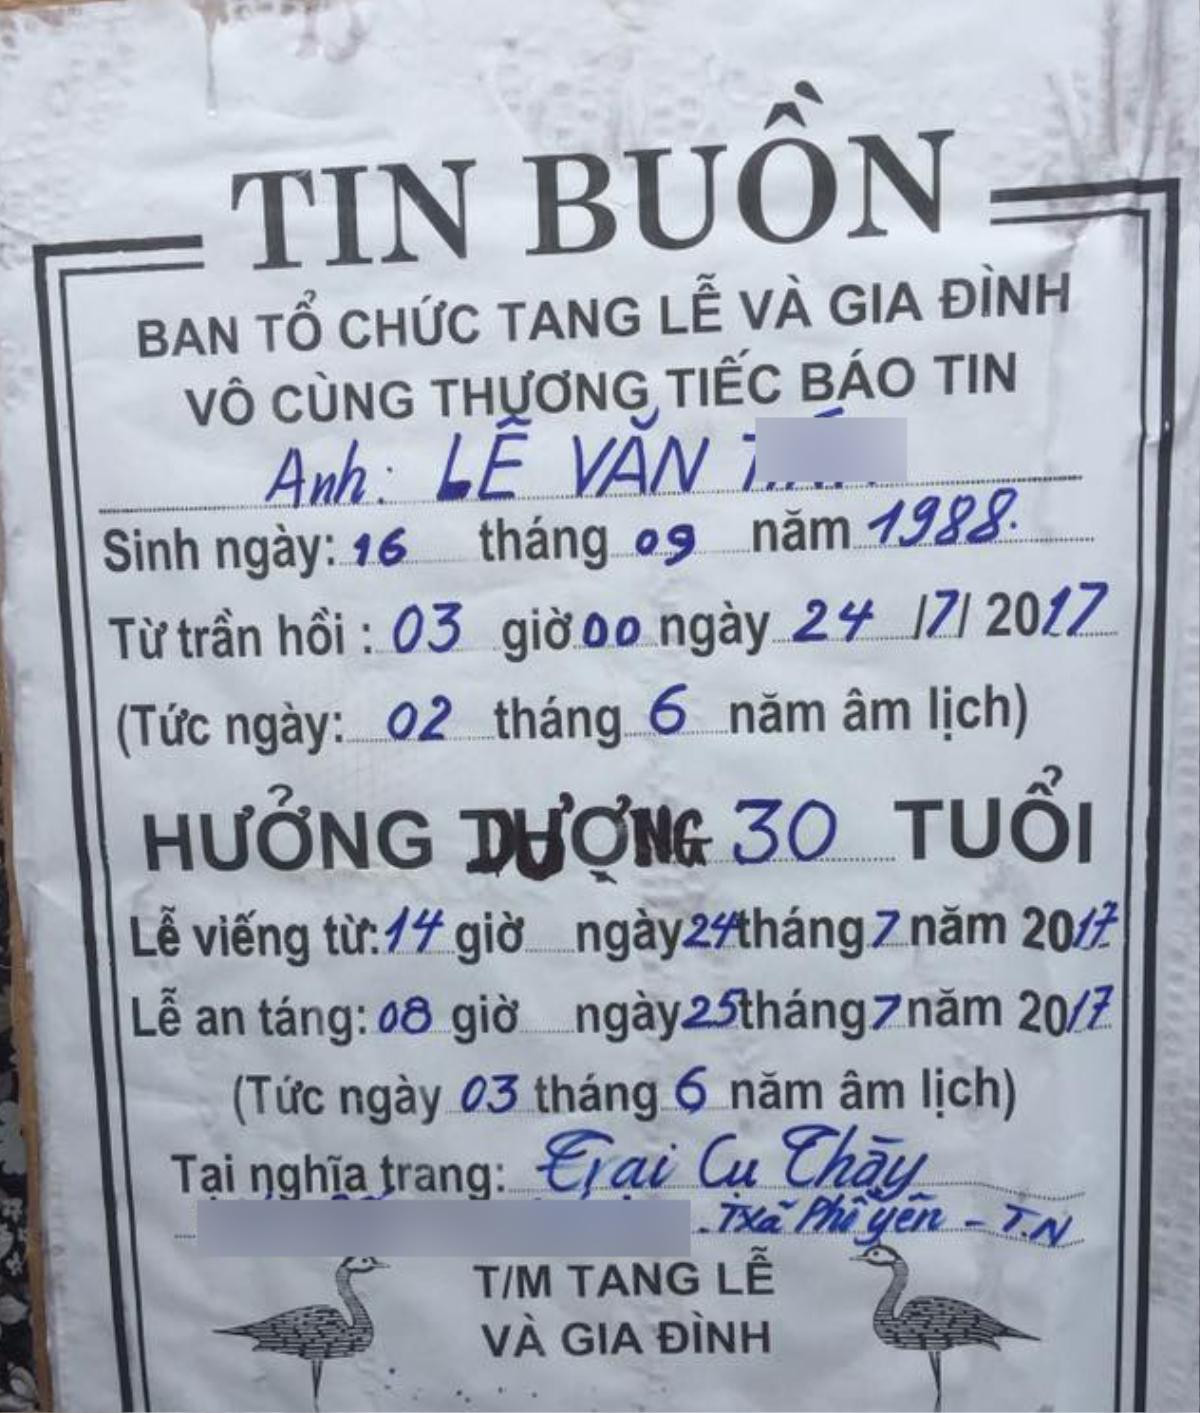 TIN BUỒN
BAN TỔ CHỨC TANG LỄ VÀ GIA ĐÌNH
VÔ CÙNG THƯƠNG TIẾC BÁO TIN
Anh: LÊ VĂN
Sinh ngày: 16 tháng 09 năm 1988.
Từ trần hồi : 03 giờ 00 ngày 24 /7/ 2017
(Tức ngày: 02 tháng 6 năm âm lịch)
HƯỞNG DƯỢNG 30 TUỔI
Lễ viếng từ: 14 giờ ngày 24 tháng 7 năm 2017
Lễ an táng: 08 giờ ngày 25 tháng 7 năm 2017
(Tức ngày 03 tháng 6 năm âm lịch)
Tại nghĩa trang: Trại Cụ Thày
. TXã Phổ yên - T.N
T/M TANG LỄ
VÀ GIA ĐÌNH